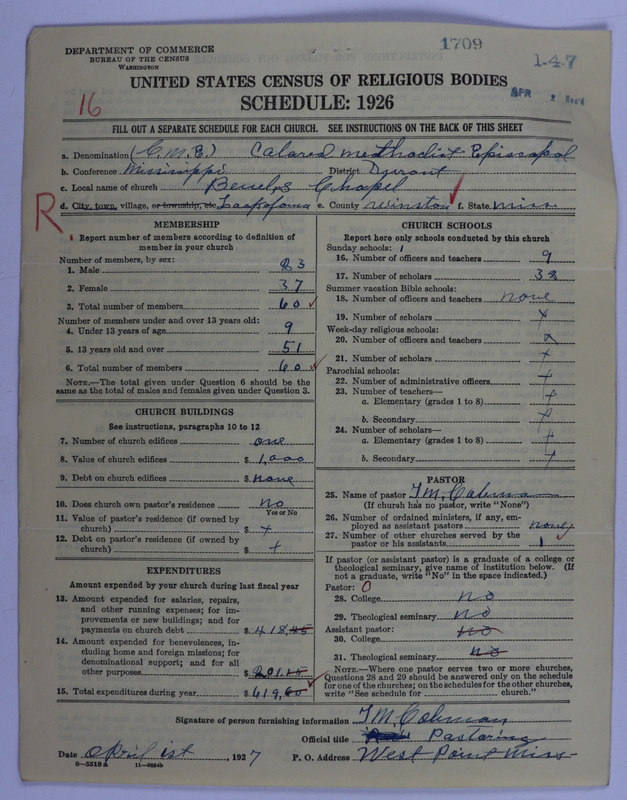 DEPARTMENT OF COMMERCE
BUREAU OF THE CENSUS
WASHINGTON
1709
1-4-7
16
UNITED STATES CENSUS OF RELIGIOUS BODIES
SCHEDULE: 1926
APR 2 Rec'd
FILL OUT A SEPARATE SCHEDULE FOR EACH CHURCH. SEE INSTRUCTIONS ON THE BACK OF THIS SHEET
a. Denomination (C.M.E.) Calared methodist Episcopal
b. Conference Mississippi District Durant
c. Local name of church Chapel
R
d. City, town, village, or township, etc. e. County Winston f. State Miss
MEMBERSHIP
Report number of members according to definition of member in your church
Number of members, by sex:
1. Male 23
2. Female 37
3. Total number of members 60
Number of members under and over 13 years old:
4. Under 13 years of age 9
5. 13 years old and over 51
6. Total number of members 60
NOTE.—The total given under Question 6 should be the same as the total of males and females given under Question 3.
CHURCH BUILDINGS
See instructions, paragraphs 10 to 12
7. Number of church edifices one
8. Value of church edifices $ 1,000
9. Debt on church edifices $ none
10. Does church own pastor's residence no
Yes or No
11. Value of pastor's residence (if owned by church) $ +
12. Debt on pastor's residence (if owned by church) $ +
EXPENDITURES
Amount expended by your church during last fiscal year
13. Amount expended for salaries, repairs, and other running expenses; for improvements or new buildings; and for payments on church debt $ 418,45
14. Amount expended for benevolences, including home and foreign missions; for denominational support; and for all other purposes $ 201.15
15. Total expenditures during year $ 619,60
CHURCH SCHOOLS
Report here only schools conducted by this church
Sunday schools: 1
16. Number of officers and teachers 9
17. Number of scholars 38
Summer vacation Bible schools:
18. Number of officers and teachers none
19. Number of scholars +
Week-day religious schools:
20. Number of officers and teachers x
21. Number of scholars +
Parochial schools:
22. Number of administrative officers +
23. Number of teachers—
a. Elementary (grades 1 to 8) +
b. Secondary +
24. Number of scholars—
a. Elementary (grades 1 to 8) +
b. Secondary +
PASTOR
25. Name of pastor T.M. Coleman
(If church has no pastor, write "None")
26. Number of ordained ministers, if any, employed as assistant pastors none
27. Number of other churches served by the pastor or his assistants 1
If pastor (or assistant pastor) is a graduate of a college or theological seminary, give name of institution below. (If not a graduate, write "No" in the space indicated.)
Pastor: 0
28. College no
29. Theological seminary no
Assistant pastor:
30. College no
31. Theological seminary no
NOTE.—Where one pastor serves two or more churches, Questions 28 and 29 should be answered only on the schedule for one of the churches; on the schedules for the other churches, write "See schedule for church."
Signature of person furnishing information T.M. Coleman
Official title Pastoring
Date april 1st, 1927 P. O. Address West Point Miss
8—5518 a 11—9564b